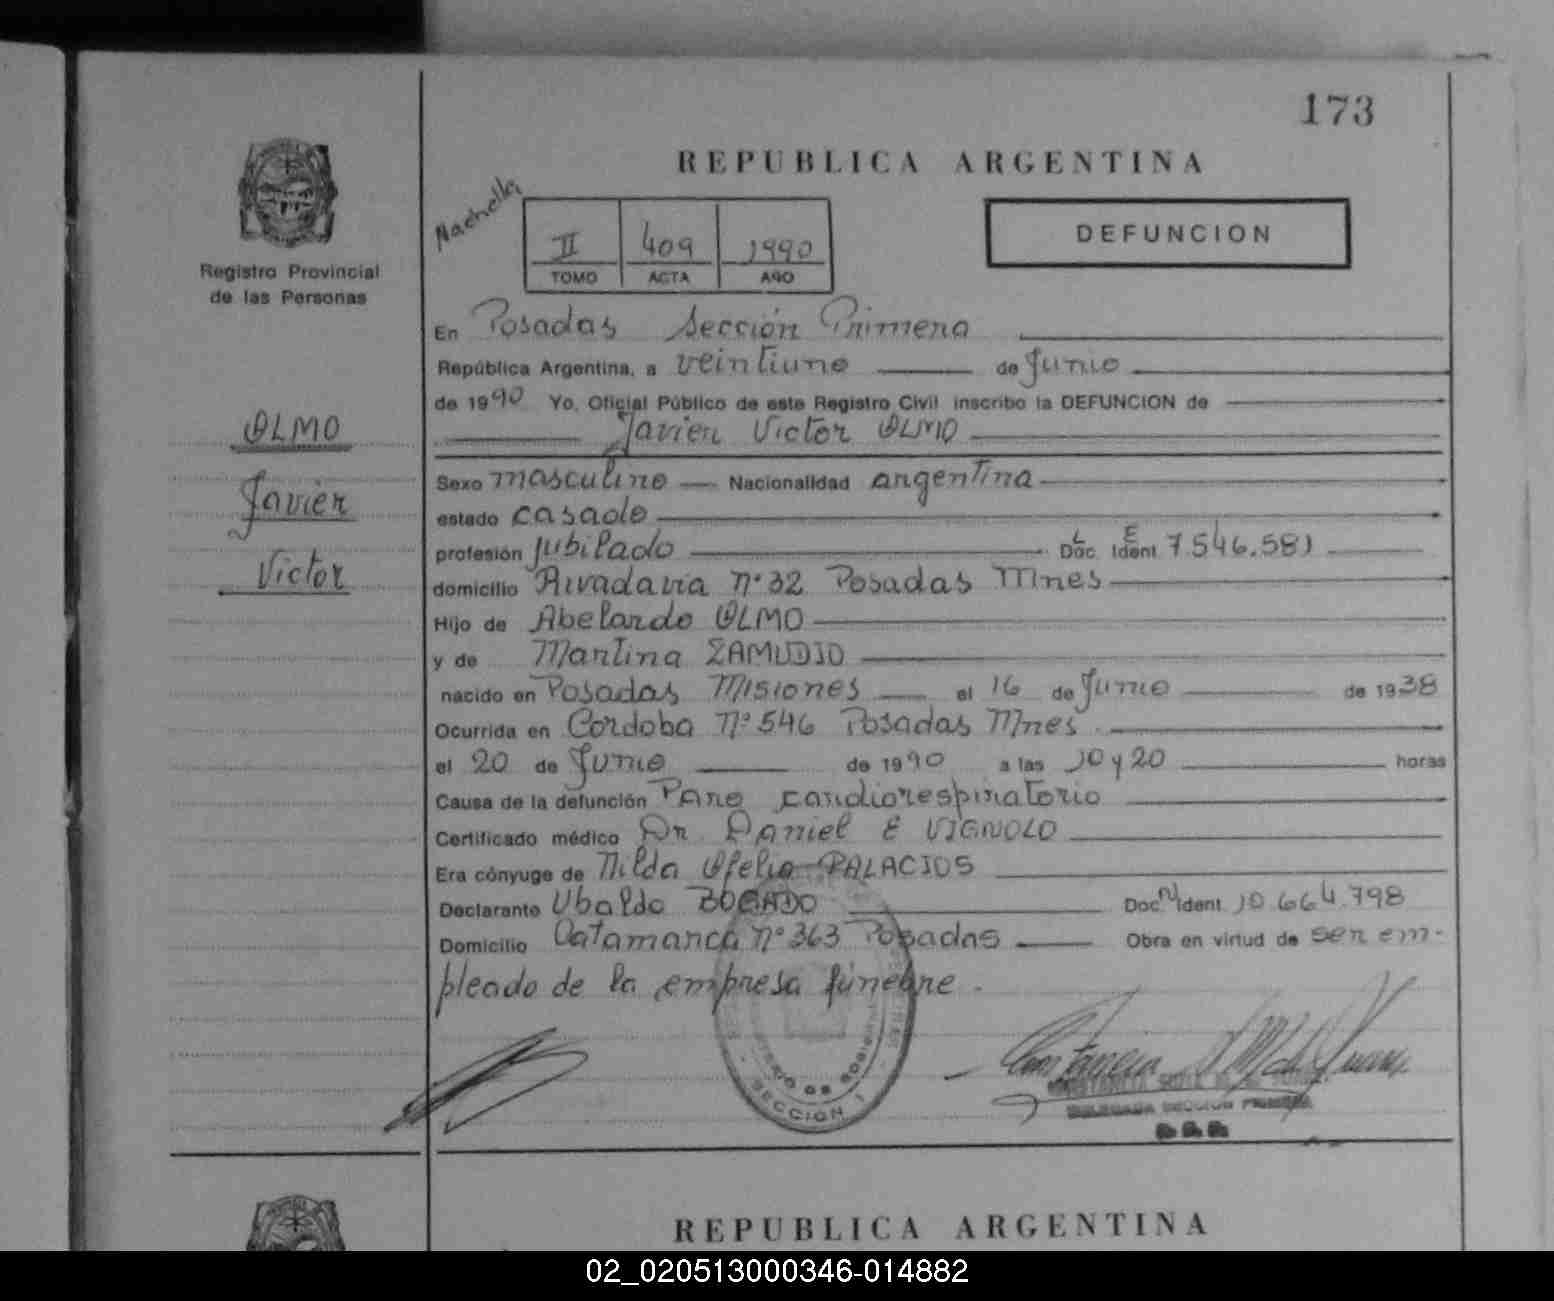 173
REPUBLICA ARGENTINA
Registro Provincial
de las Personas
II 409 1990
TOMO ACTA AÑO
DEFUNCION
OLMO
Javier
Victor
En Posadas Sección Primera
República Argentina, a veintiuno de Junio
de 1990 Yo, Oficial Público de este Registro Civil inscribo la DEFUNCION de
Javier Victor OLMO
Sexo masculino Nacionalidad argentina
estado casado
profesión jubilado L E Doc. Ident. 7.546.581
domicilio Rivadavia Nº 32 Posadas Mnes
Hijo de Abelardo OLMO
y de Martina ZAMUDIO
nacido en Posadas Misiones el 16 de Junio de 1938
Ocurrida en Cordoba Nº 546 Posadas Mnes.
el 20 de Junio de 1990 a las 10 y 20 horas
Causa de la defunción Paro cardiorespiratorio
Certificado médico Dr. Daniel E VIGNOLO
Era cónyuge de Nilda Ofelia PALACIOS
Declarante Ubaldo BOGADO Doc. N Ident. 10.664.798
Domicilio Catamarca Nº 363 Posadas Obra en virtud de ser em-
pleado de la empresa fúnebre.
SECCION 1
DELEGADA SECCION PRIMERA
REPUBLICA ARGENTINA
02_020513000346-014882